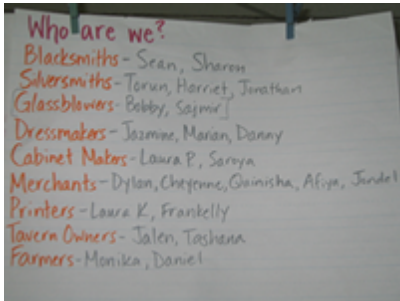 Who are we?
Blacksmiths - Sean, Sharon
Silversmiths - Torun, Harriet, Jonathan
[Glassblowers - Bobby, Sajmir]
Dressmakers - Jazmine, Marian, Danny
Cabinet Makers - Laura P., Saroya
Merchants - Dylan, Cheyenne, Quinisha, Afiya, Jendel
Printers - Laura K, Frankelly
Tavern Owners - Jalen, Tashana
Farmers - Monika, Daniel